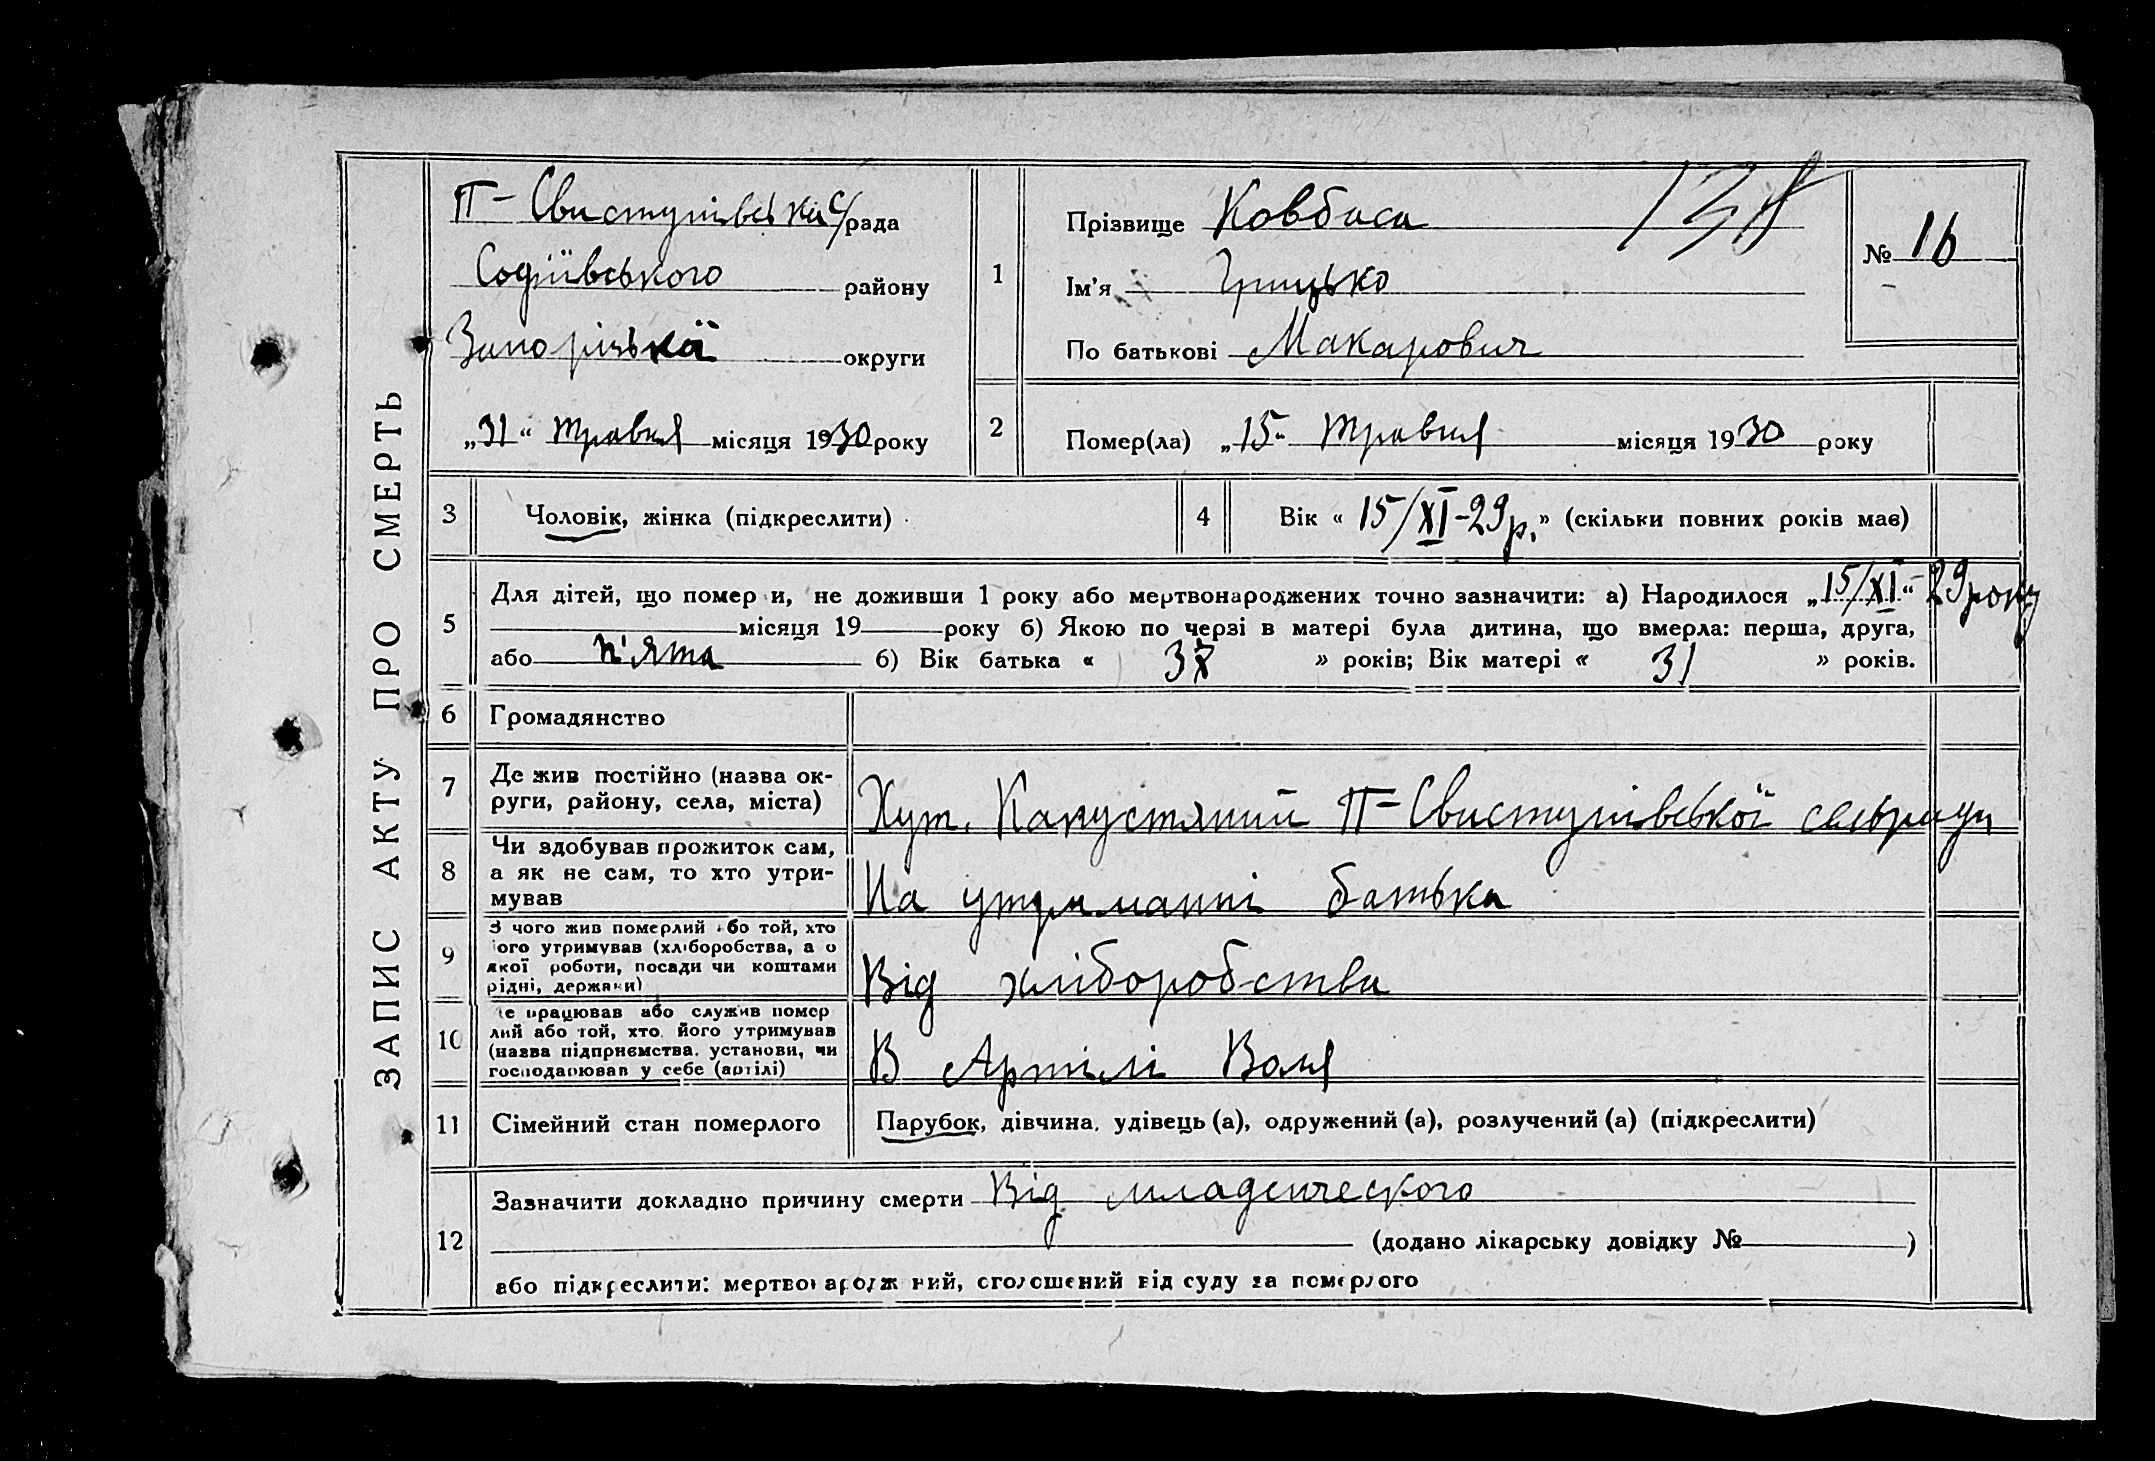 ЗАПИС АКТУ ПРО СМЕРТЬ
П-Свистунівська с/рада
Софіївського району
Запорізької округи
„31“ травня місяця 1930 року
1
Прізвище Ковбаса
138
Ім'я Грицько
По батькові Макарович
№ 16
2
Помер(ла) „15“ травня місяця 1930 року
3
Чоловік, жінка (підкреслити)
4
Вік « 15/XI-29 р. » (скільки повних років має)
5
Для дітей, що помер и, не доживши 1 року або мертвонароджених точно зазначити: а) Народилося „15/XI“ 29 року
місяця 19 року б) Якою по черзі в матері була дитина, що вмерла: перша, друга,
або п'ята б) Вік батька « » років; Вік матері « 31 » років.
6
Громадянство
7
Де жив постійно (назва ок-
руги, району, села, міста)
Хут. Капустяний П-Свистунівської сельради
8
Чи здобував прожиток сам,
а як не сам, то хто утри-
мував
На утриманні батька
9
З чого жив померлий або той, хто
його утримував (хліборобства, а о
якої роботи, посади чи коштами
рідні, держави)
Від хліборобства
10
е працював або служив помер
лий або той, хто його утримував
(назва підприємства, установи, чи
господарював у себе (артілі)
В Артілі Воля
11
Сімейний стан померлого
Парубок, дівчина, удівець (а), одружений (а), розлучений (а) (підкреслити)
12
Зазначити докладно причину смерти Від младенческого
(додано лікарську довідку № )
або підкреслити: мертвонароджений, оголошений від суду за померлого